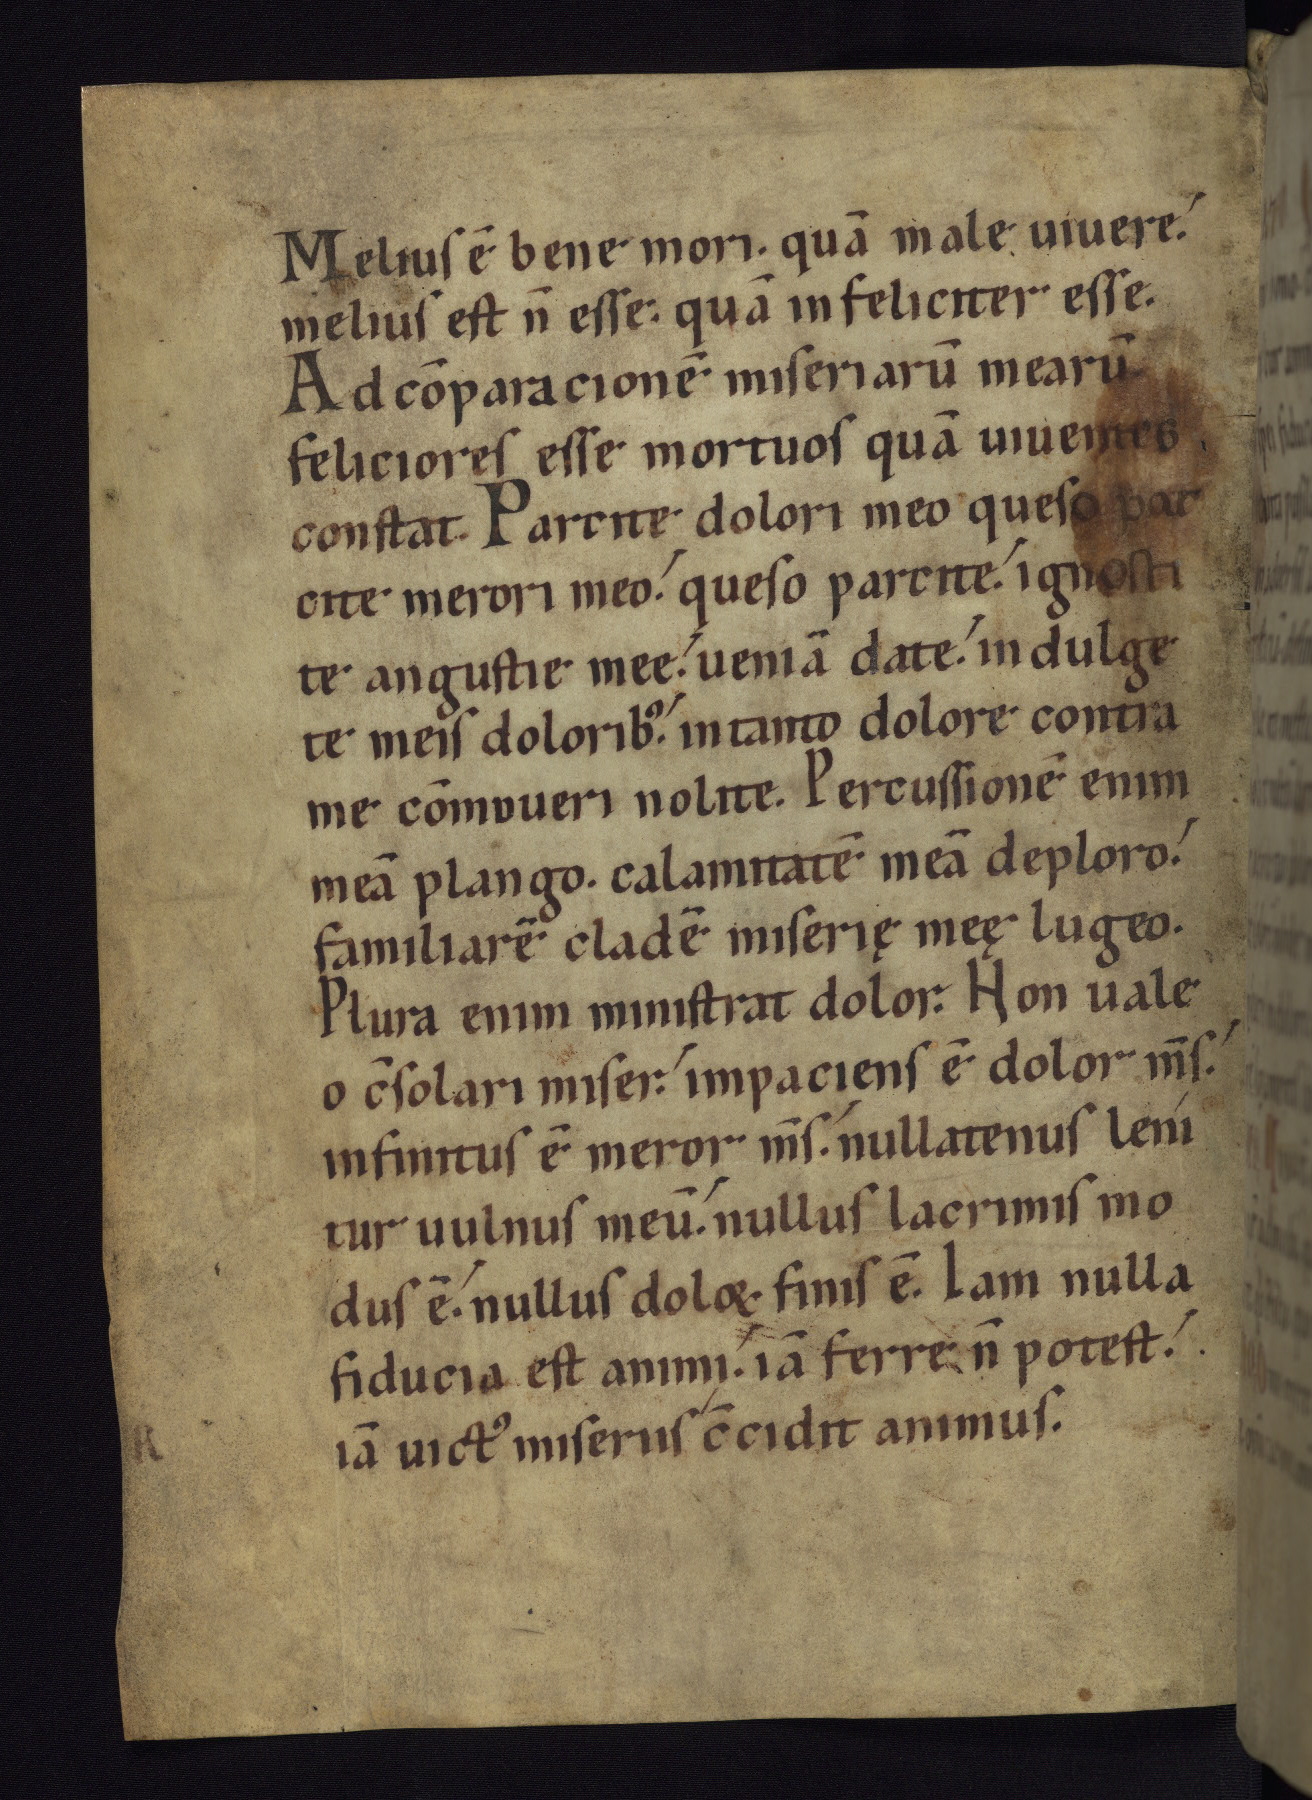 Melius ē bene mori. quā male uiuere.
melius est n̄ esse. quā infeliciter esse.
Ad cōparacionē miseriarū mearū
feliciores esse mortuos quā uiuentes
constat. Parcite dolori meo queso par
cite merori meo. queso parcite. ignosci
te angustie mee. ueniā date. indulge
te meis dolorib⁹. in tanto dolore contra
me cōmoueri nolite. Percussionē enim
meā plango. calamitatē meā deploro.
familiarē cladē miserię meę lugeo.
Plura enim ministrat dolor. Non uale
o c̄solari miser. impaciens ē dolor m̄s.
infinitus ē meror m̄s. nullatenus leni
tur uulnus meū. nullus lacrimis mo
dus ē. nullus doloꝝ finis ē. Iam nulla
fiducia est animi. iā ferre n̄ potest.
iā uict⁹ miseriis c̄cidit animus.
R